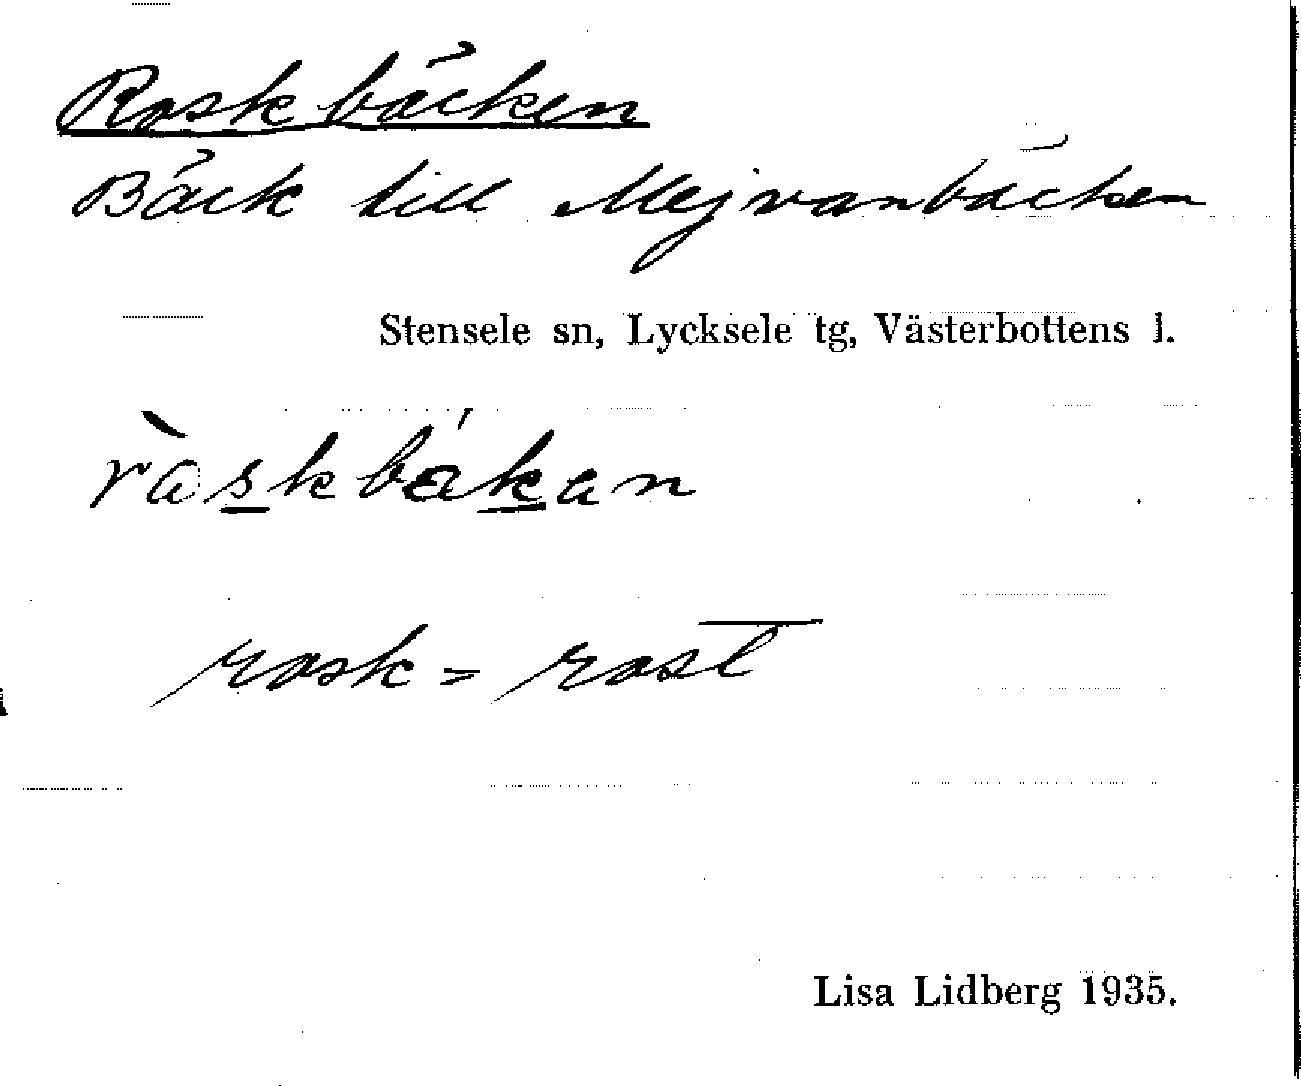 Roskbäcken
Bäck till Mejvanbäcken
Stensele sn, Lycksele tg, Västerbottens l.
ràskbákan
rosk = rost
Lisa Lidberg 1935.